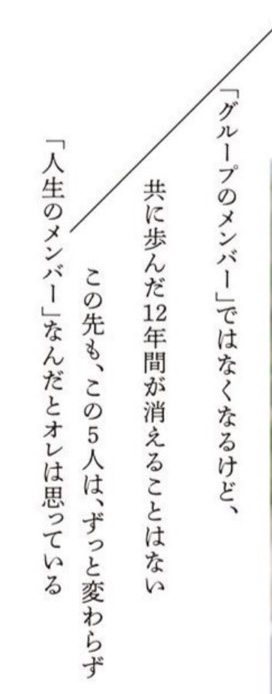 「グループのメンバー」ではなくなるけど、
共に歩んだ12年間が消えることはない
この先も、この5人は、ずっと変わらず
「人生のメンバー」なんだとオレは思っている